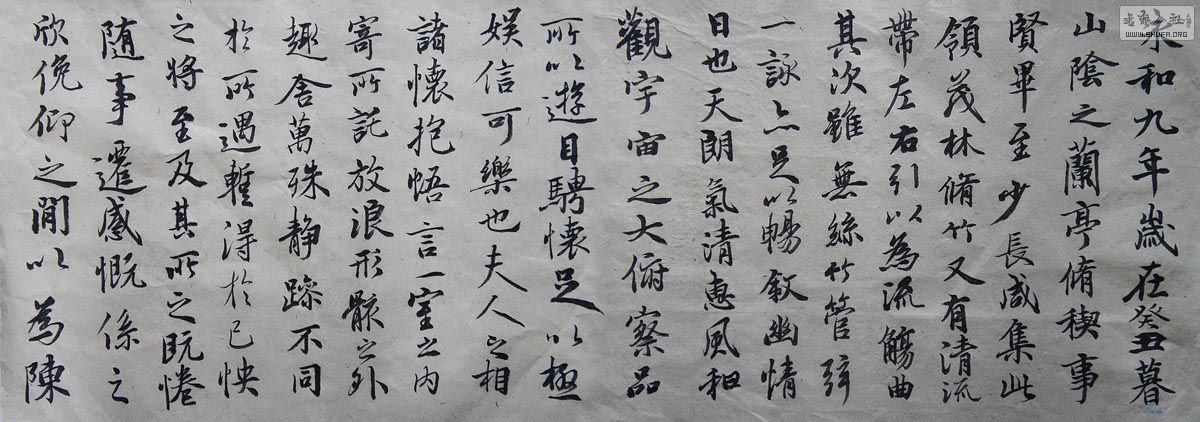 永和九年歲在癸丑暮
山陰之蘭亭脩稧事
賢畢至少長咸集此
領茂林脩竹又有清流
帶左右引以為流觴曲
其次雖無絲竹管弦
一詠亦足以暢敘幽情
日也天朗氣清惠風和
觀宇宙之大俯察品
所以遊目騁懷足以極
娛信可樂也夫人之相
諸懷抱悟言一室之內
寄所託放浪形骸之外
趣舍萬殊静躁不同
於所遇蹔得於己怏
之將至及其所之既惓
随事遷感慨係之
欣俛仰之閒以為陳
WWW.SHUFA.ORG